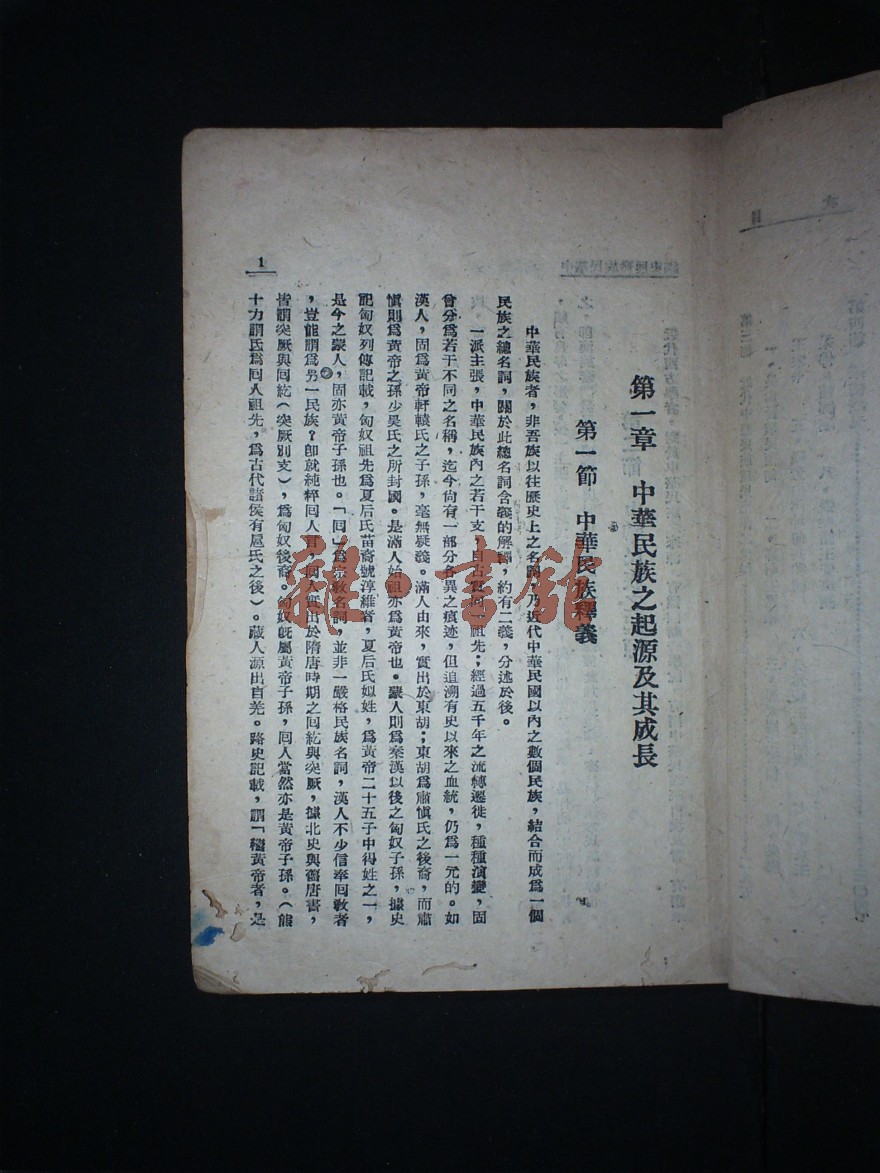 第一章　中華民族之起源及其成長
第一節　中華民族釋義
中華民族者，非吾族以往歷史上之名詞，乃近代中華民國以內之數個民族，結合而成爲一個
民族之總名詞，關於此總名詞含義的解釋，約有二義，分述於後。
一派主張，中華民族內之若干支，自古實同一祖先；經過五千年之流轉遷徙，種種演變，固
曾分爲若干不同之名稱，迄今尙有一部分各異之痕迹，但追溯有史以來之血統，仍爲一元的。如
漢人，固爲黃帝軒轅氏之子孫，毫無疑義。滿人由來，實出於東胡；東胡爲肅愼氏之後裔，而肅
愼則爲黃帝之孫少吳氏之所封國。是滿人始祖亦爲黃帝也。蒙人則爲秦漢以後之匈奴子孫，據史
記匈奴列傳記載，匈奴祖先爲夏后氏苗裔號淳維者，夏后氏姒姓，爲黃帝二十五子中得姓之一，
是今之蒙人，固亦黃帝子孫也。「回」爲宗教名詞，並非一嚴格民族名詞，漢人不少信奉回教者
，豈能謂爲另一民族？卽就純粹回人言，回人實出於隋唐時期之回紇與突厥，據北史與舊唐書，
皆謂突厥與回紇（突厥別支），爲匈奴後裔。匈奴旣屬黃帝子孫，回人當然亦是黃帝子孫。（熊
十力謂氐爲回人祖先，爲古代諸侯有扈氏之後）。藏人源出自羌。路史記載，謂「繼黃帝者，是
1
雜·書館